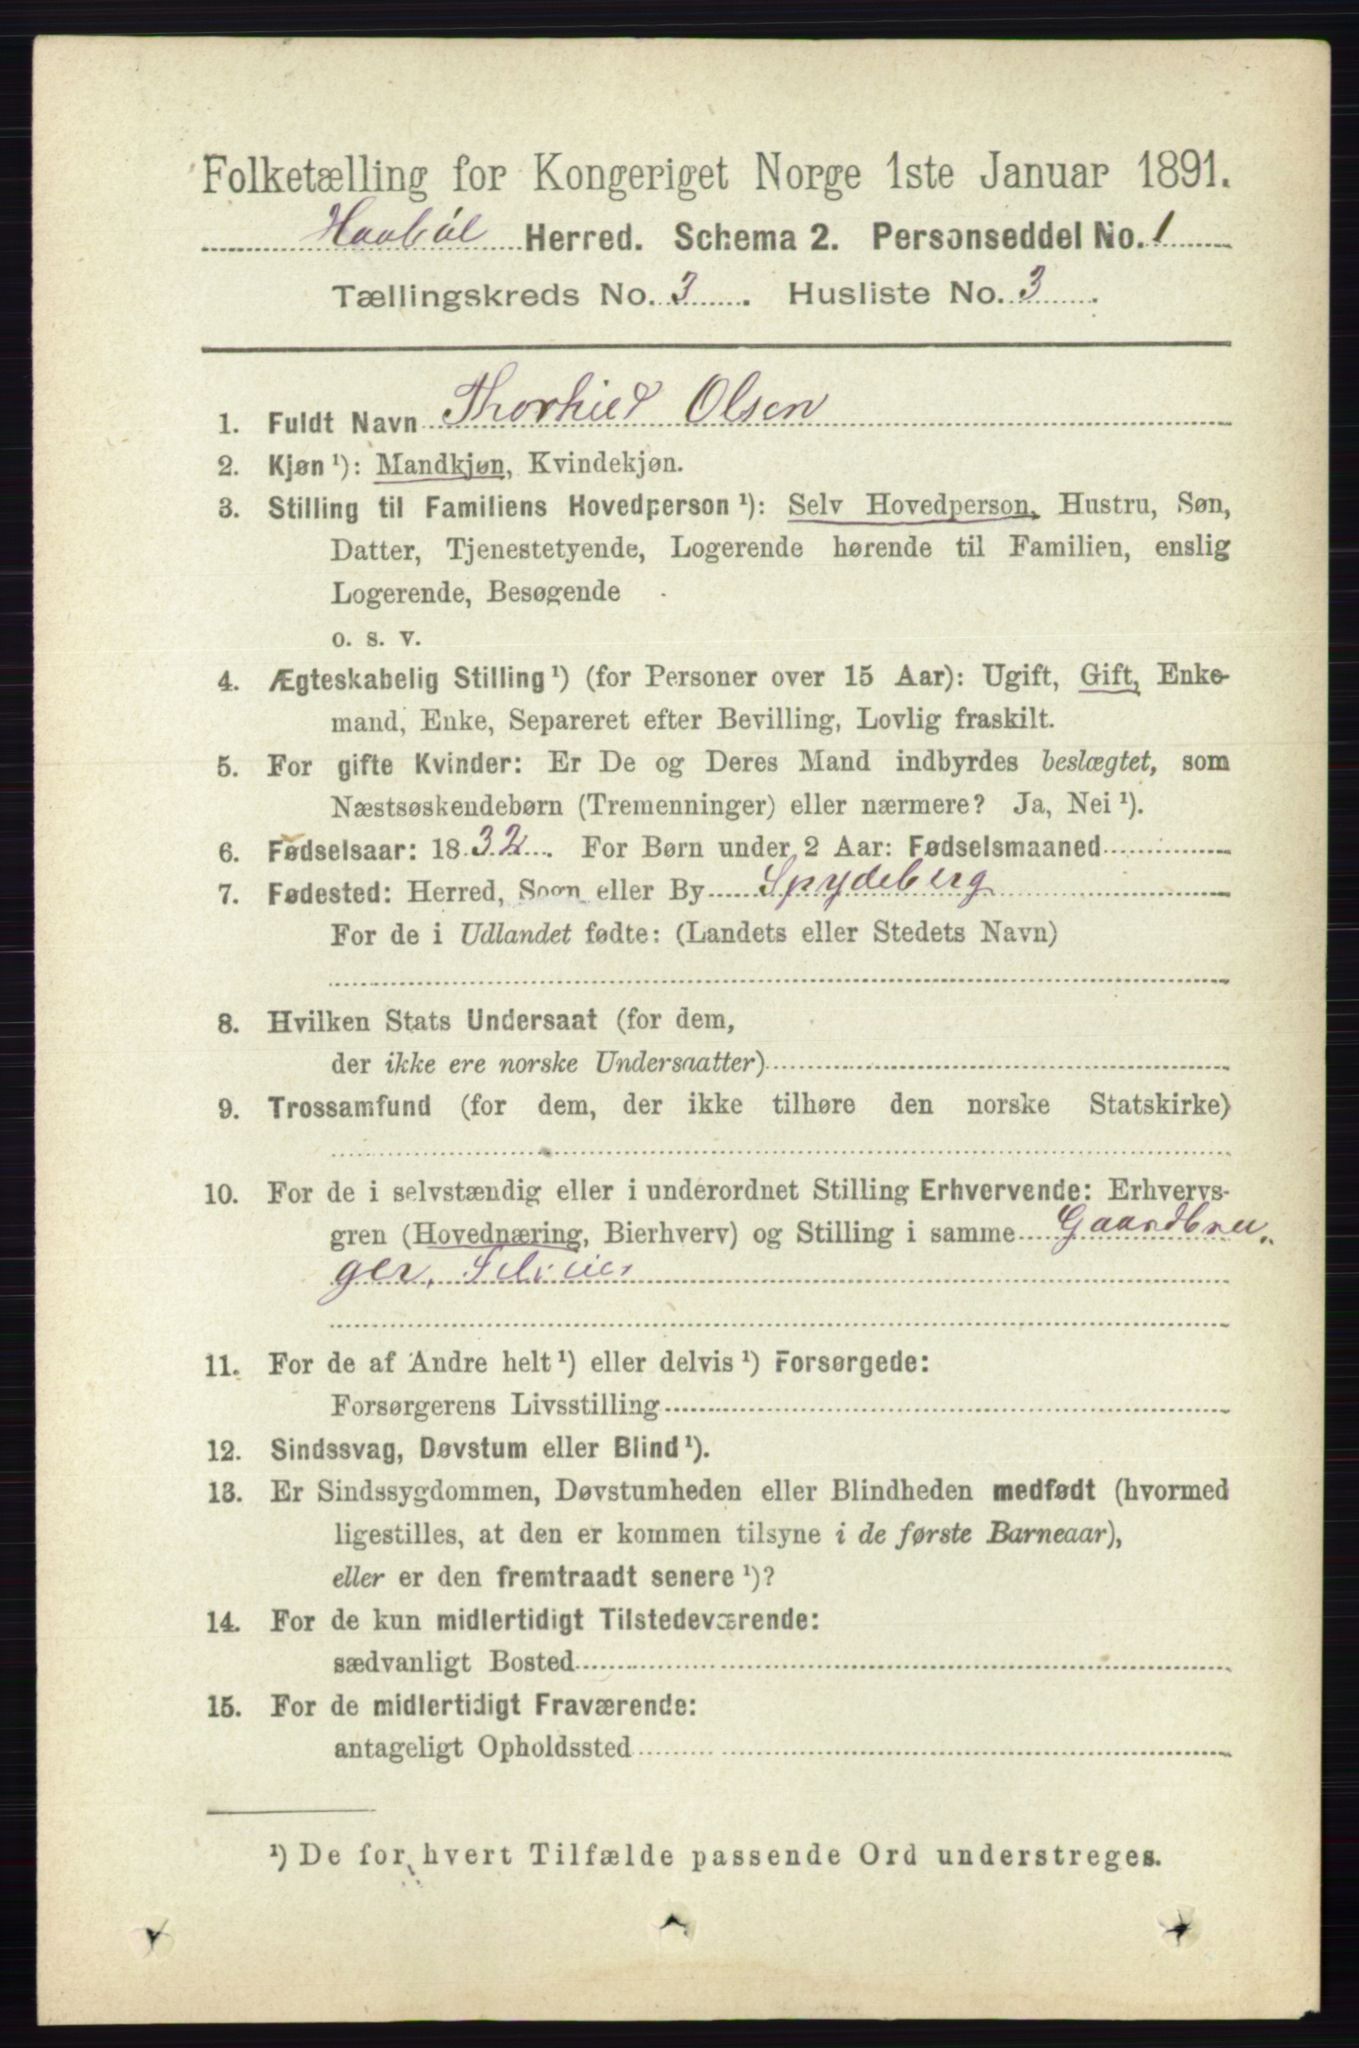 Folketælling for Kongeriget Norge 1ste Januar 1891.
Haabøl Herred. Schema 2. Personseddel No. 1
Tællingskreds No. 3. Husliste No. 3.
1. Fuldt Navn Thorkild Olsen
2. Kjøn ¹): Mandkjøn, Kvindekjøn.
3. Stilling til Familiens Hovedperson ¹): Selv Hovedperson, Hustru, Søn,
Datter, Tjenestetyende, Logerende hørende til Familien, enslig
Logerende, Besøgende
o. s. v.
4. Ægteskabelig Stilling ¹) (for Personer over 15 Aar): Ugift, Gift, Enke-
mand, Enke, Separeret efter Bevilling, Lovlig fraskilt.
5. For gifte Kvinder: Er De og Deres Mand indbyrdes beslægtet, som
Næstsøskendebørn (Tremenninger) eller nærmere? Ja, Nei ¹).
6. Fødselsaar: 1832. For Børn under 2 Aar: Fødselsmaaned
7. Fødested: Herred, Sogn eller By Spydeberg
For de i Udlandet fødte: (Landets eller Stedets Navn)
8. Hvilken Stats Undersaat (for dem,
der ikke ere norske Undersaatter)
9. Trossamfund (for dem, der ikke tilhøre den norske Statskirke)
10. For de i selvstændig eller i underordnet Stilling Erhvervende: Erhvervs-
gren (Hovednæring, Bierhverv) og Stilling i samme Gaardbru-
ger, Selveier
11. For de af Andre helt ¹) eller delvis ¹) Forsørgede:
Forsørgerens Livsstilling
12. Sindssvag, Døvstum eller Blind ¹).
13. Er Sindssygdommen, Døvstumheden eller Blindheden medfødt (hvormed
ligestilles, at den er kommen tilsyne i de første Barneaar),
eller er den fremtraadt senere ¹)?
14. For de kun midlertidigt Tilstedeværende:
sædvanligt Bosted
15. For de midlertidigt Fraværende:
antageligt Opholdssted
¹) De for hvert Tilfælde passende Ord understreges.